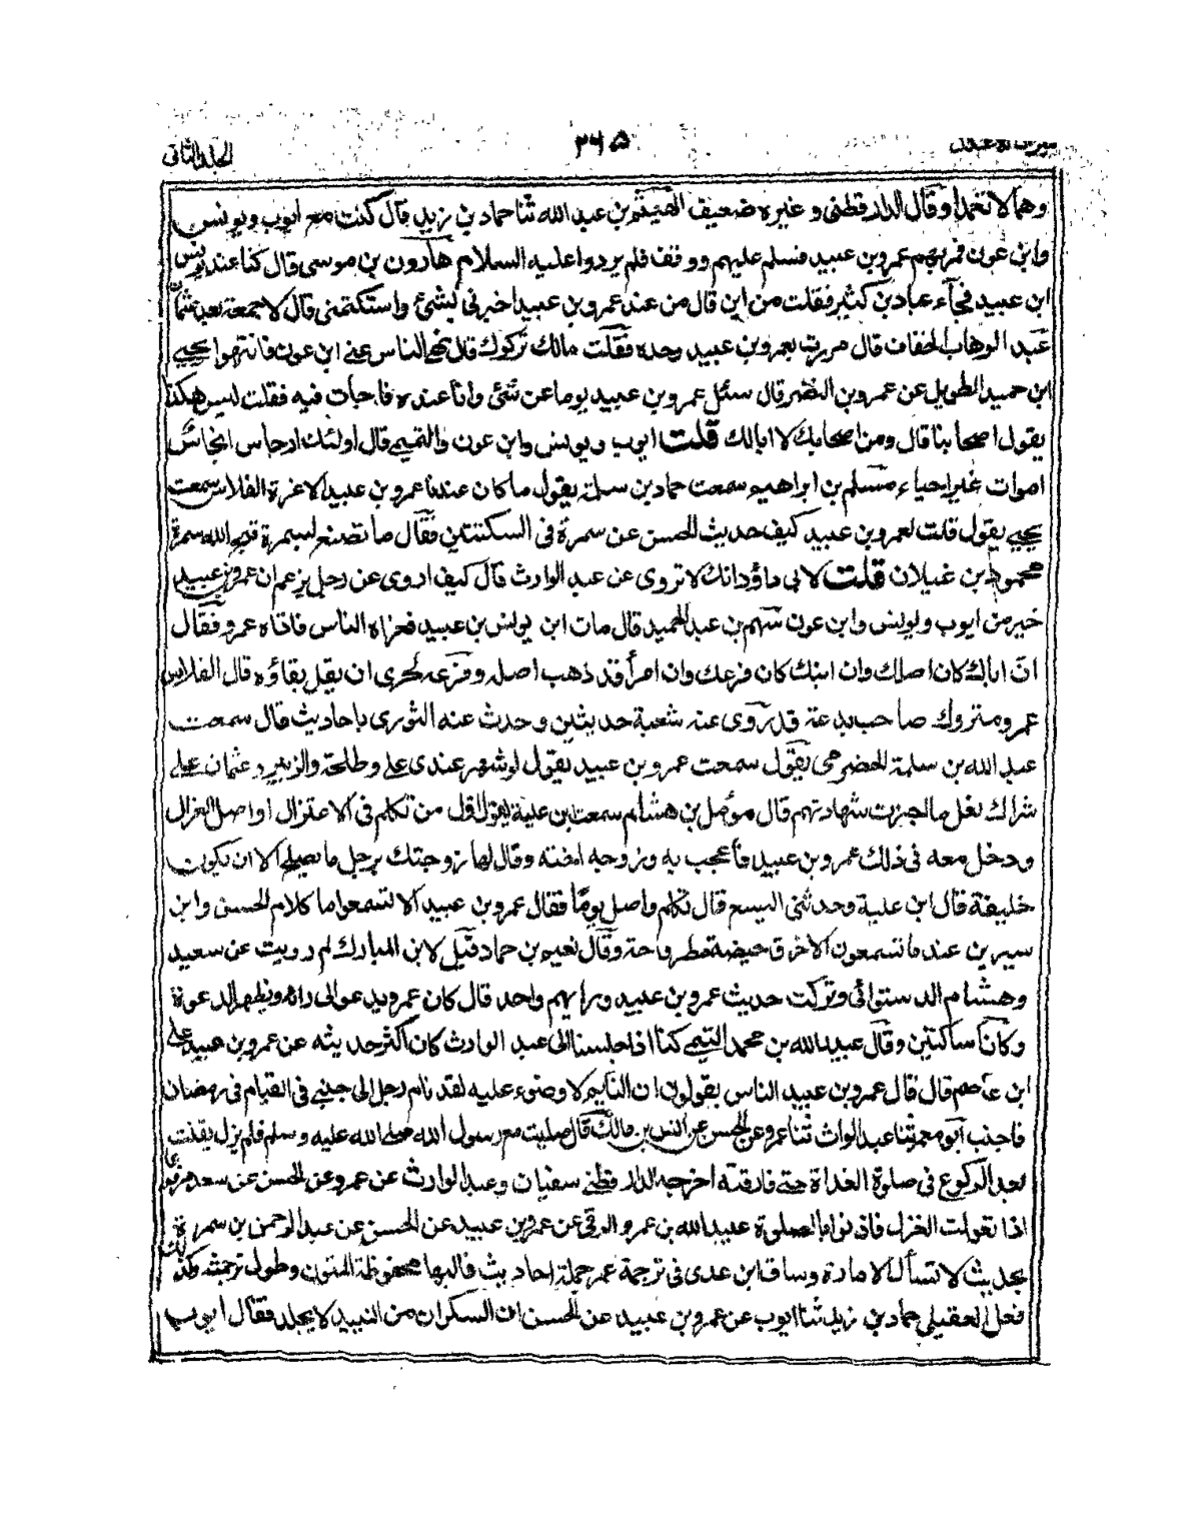 الجلد الثانى ٢٦٥ ميزان الاعتدال
وهما لا تعمدا وقال الدارقطنى وغيره ضعيف الهيثم بن عبد الله ثنا حماد بن زيد قال كنت مع ايوب ويونس
وابن عون فمر بهم عمرو بن عبيد فسلم عليهم ووقف فلم يردوا عليه السلام هارون بن موسى قال كنا عند يونس
ابن عبيد فجآء عباد بن كثير فقلت من اين قال من عند عمرو بن عبيد اخبرنى بشئ واستكتمنى قال لا جمعة بعد عثمان
عبد الوهاب الخفاف قال مررت بعمرو بن عبيد وحده فقلت مالك تركوك قال نهى الناس عنى ابن عون فانتهوا يحيى
ابن حميد الطويل عن عمرو بن النضر قال سئل عمرو بن عبيد يوما عن شئ وانا عنده فاجاب فيه فقلت ليس هكذا
يقول اصحابنا قال ومن اصحابك لا ابالك قلت ايوب ويونس وابن عون والتيمى قال اولئك ارجاس انجاس
اموات غير احياء مسلم بن ابراهيم سمعت حماد بن سلمة يقول ما كان عندنا عمرو بن عبيد الا عرة الفلاس سمعت
يحيى يقول قلت لعمرو بن عبيد كيف حديث الحسن عن سمرة فى السكتتين فقال ما تصنع لسمرة قبح الله سمرة
محمود بن غيلان قلت لابى داؤد انك لا تروى عن عبد الوارث قال كيف اروى عن رجل يزعم ان عمرو بن عبيد
خير من ايوب ويونس وابن عون سهم بن عبد الحميد قال مات ابن يونس بن عبيد فعزاه الناس فاتاه عمرو فقال
ان اباك كان اصلك وان ابنك كان فرعك وان امرأ قد ذهب اصله وفرعه لحرى ان يقل بقاؤه قال الفلاس
عمرو متروك صاحب بدعة قد روى عنه شعبة حديثين وحدث عنه الثورى باحاديث قال سمعت
عبد الله بن سلمة الحضرمى يقول سمعت عمرو بن عبيد يقول لو شهد عندى على وطلحة والزبير وعثمان على
شراك نعل ما اجزت شهادتهم قال مؤمل بن هشام سمعت ابن علية يقول اول من تكلم فى الاعتزال اواصل الغزال
ودخل معه فى ذلك عمرو بن عبيد فاعجب به وزوجه اخته وقال لها زوجتك برجل ما يصلح الا ان يكون
خليفة قال ابن علية وحدثنى اليسع قال تكلم واصل يوما فقال عمرو بن عبيد الا تسمعوا ما كلام الحسن وابن
سيرين عند ما تسمعون الا خرقة حيضة مطروحة وقال نعيم بن حماد قيل لابن المبارك لم رويت عن سعيد
وهشام الدستوائى وتركت حديث عمرو بن عبيد ورايهم واحد قال كان عمرو يدعو الى رائه ويظهر الدعوة
وكانا ساكتين وقال عبيد الله بن محمد التيمى كنا اذا جلسنا الى عبد الوارث كان اكثر حديثه عن عمرو بن عبيد على
ابن عاصم قال قال عمرو بن عبيد الناس يقولون ان النايم لا وضوء عليه لقد نام رجل الى جنبى فى القيام فى رمضان
فاجنب ابو معمر ثنا عبد الوارث ثنا عمرو عن الحسن عن انس بن مالك قال صليت مع رسول الله صلى الله عليه وسلم فلم يزل يقنت
بعد الركوع فى صلوة الغداة حتى فارقته اخرجه الدارقطنى سفيان وعبد الوارث عن عمرو عن الحسن عن سعد مرفوعا
اذا تغولت الغول فاذنوا بالصلوة عبيد الله بن عمرو الرقى عن عمرو بن عبيد عن الحسن عن عبد الرحمن بن سمرة
بحديث لا تسأل الامارة وساق ابن عدى فى ترجمة عمرو جملة احاديث غالبها محفوظة المتون وطول ترجمته وكذلك
فعل العقيلى حماد بن زيد ثنا ايوب عن عمرو بن عبيد عن الحسن ان السكران من النبيذ لا يجلد فقال ايوب